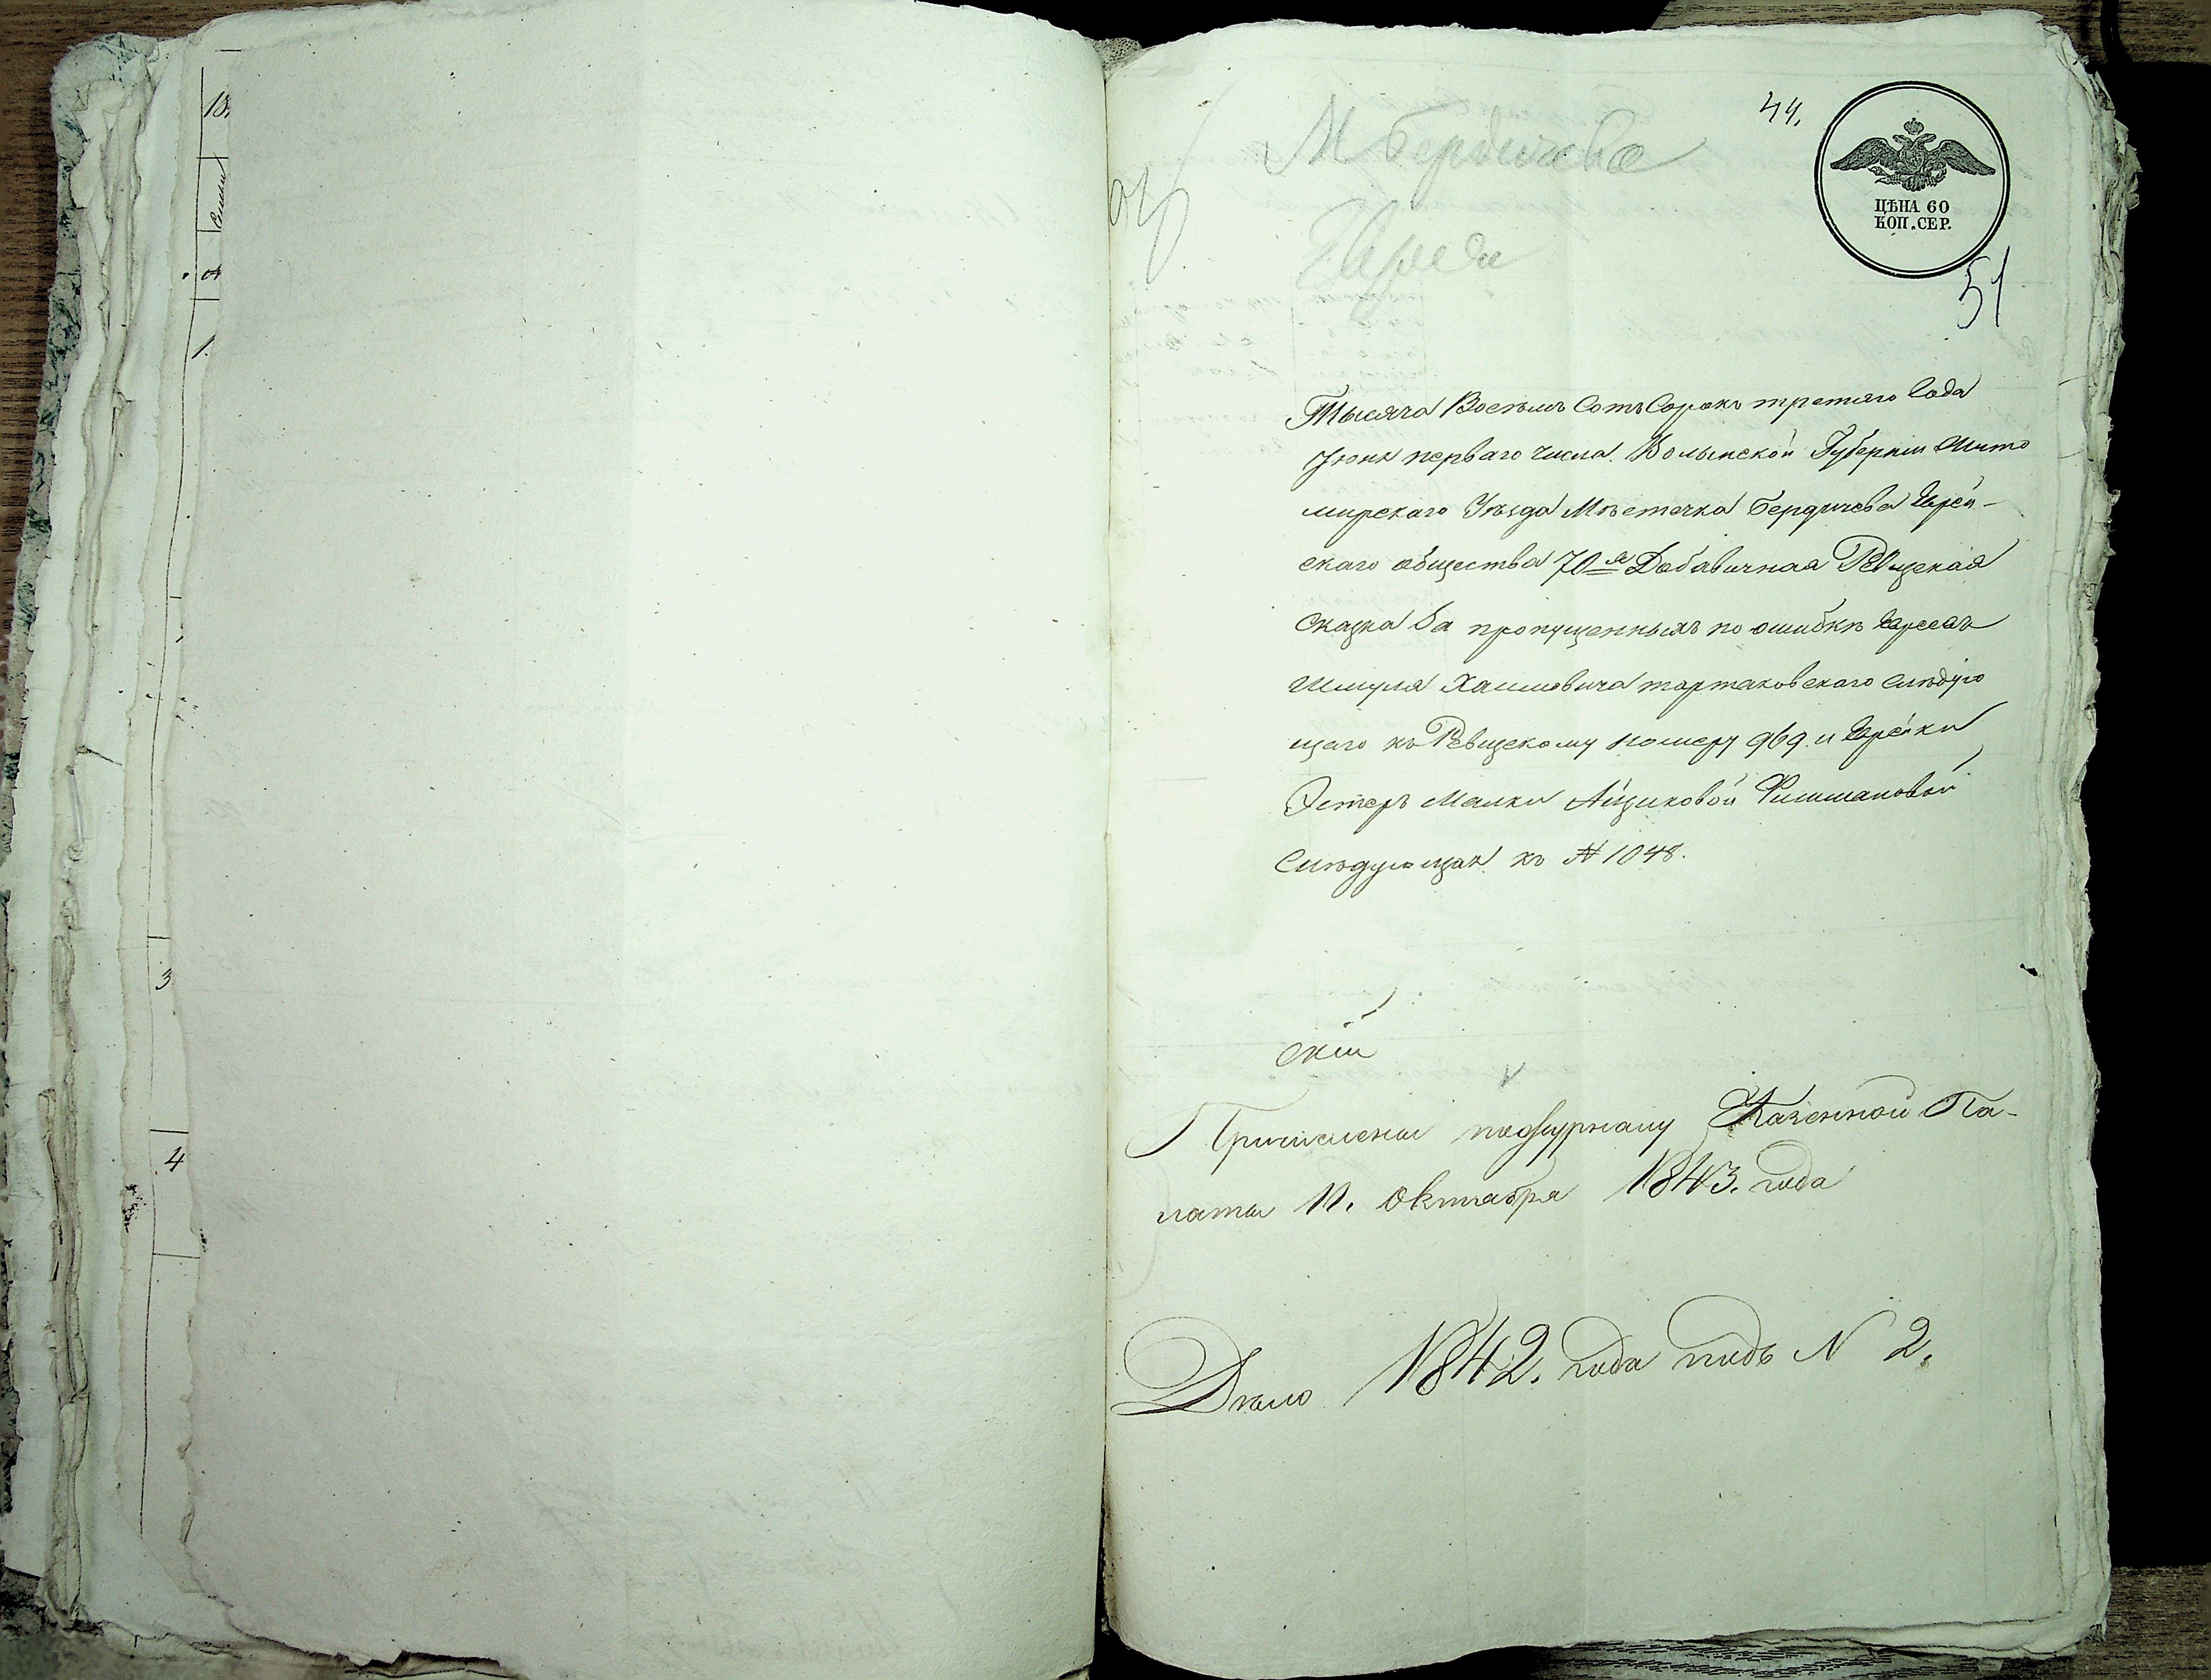 13.
1.
3
4
44.
М Бердичева
Евреи
ЦѢНА 60
КОП. СЕР.
51
Тысяча Восемъ Сотъ Сорокъ третяго Года
Іюня перваго числа. Волынской Губерніи Жито
мирскаго Уѣзда Мѣстечка Бердичева Еврей-
скаго общества 70я Добавичная Ревизская
Сказка За пропущенныхъ по ошибкѣ Евреевъ
Шмуля Хаимовича тартаковскаго слѣдую
щаго къ Ревизскому номеру 969. и Еврейки
Эстеръ Малки Айзиковой Фишмановой
Слѣдующая къ № 1048.
скій
Причислены по журналу Казенной Па-
латы 11. Октября 1843. года
Дѣло 1842. года подъ N 2.